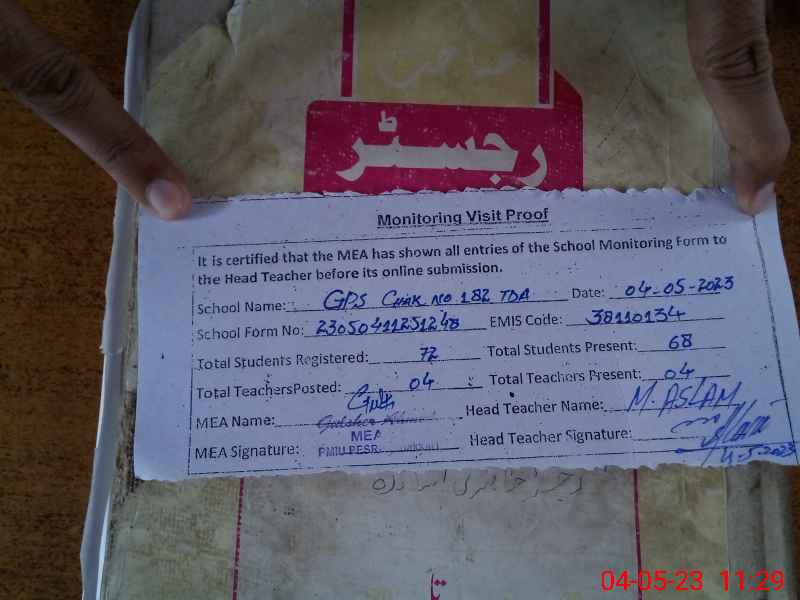 صاحب
رجسٹر
Monitoring Visit Proof
It is certified that the MEA has shown all entries of the School Monitoring Form to
the Head Teacher before its online submission.
School Name: GPS Chak No 182 TDA Date: 04-05-2023
School Form No: 23050411251248 EMIS Code: 38110134
Total Students Registered: 72 Total Students Present: 68
Total TeachersPosted: 04 Total Teachers Present: 04
MEA Name: Head Teacher Name: M. ASLAM
MEA
MEA Signature: Head Teacher Signature:
4-5-2023
04-05-23 11:29